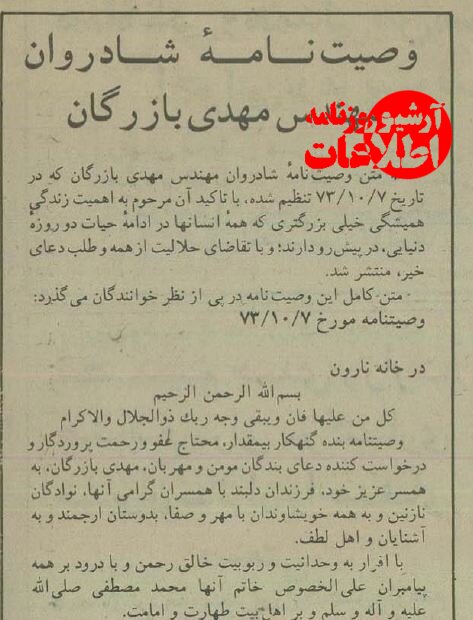 وصیت‌نامهٔ شادروان
مهندس مهدی بازرگان
آرشیو روزنامه
اطلاعات
متن وصیت‌نامهٔ شادروان مهندس مهدی بازرگان که در
تاریخ ۷۳/۱۰/۷ تنظیم شده، با تاکید آن مرحوم به اهمیت زندگی
همیشگی خیلی بزرگتری که همهٔ انسانها در ادامهٔ حیات دو روزهٔ
دنیایی، در پیش‌رو دارند؛ و با تقاضای حلالیت از همه و طلب دعای
خیر، منتشر شد.
متن کامل این وصیت‌نامه در پی از نظر خوانندگان می‌گذرد:
وصیتنامه مورخ ۷۳/۱۰/۷
در خانه نارون
بسم‌الله الرحمن الرحیم
کل من علیها فان ویبقی وجه ربك ذوالجلال والاکرام
وصیتنامه بنده گنهکار بیمقدار، محتاج عفو و رحمت پروردگار و
درخواست کننده دعای بندگان مومن و مهربان، مهدی بازرگان، به
همسر عزیز خود، فرزندان دلبند با همسران گرامی آنها، نوادگان
نازنین و به همه خویشاوندان با مهر و صفا، بدوستان ارجمند و به
آشنایان و اهل لطف.
با اقرار به وحدانیت و ربوبیت خالق رحمن و با درود بر همه
پیامبران علی‌الخصوص خاتم آنها محمد مصطفی صلی‌الله
علیه و آله و سلم و بر اهل بیت طهارت و امامت.